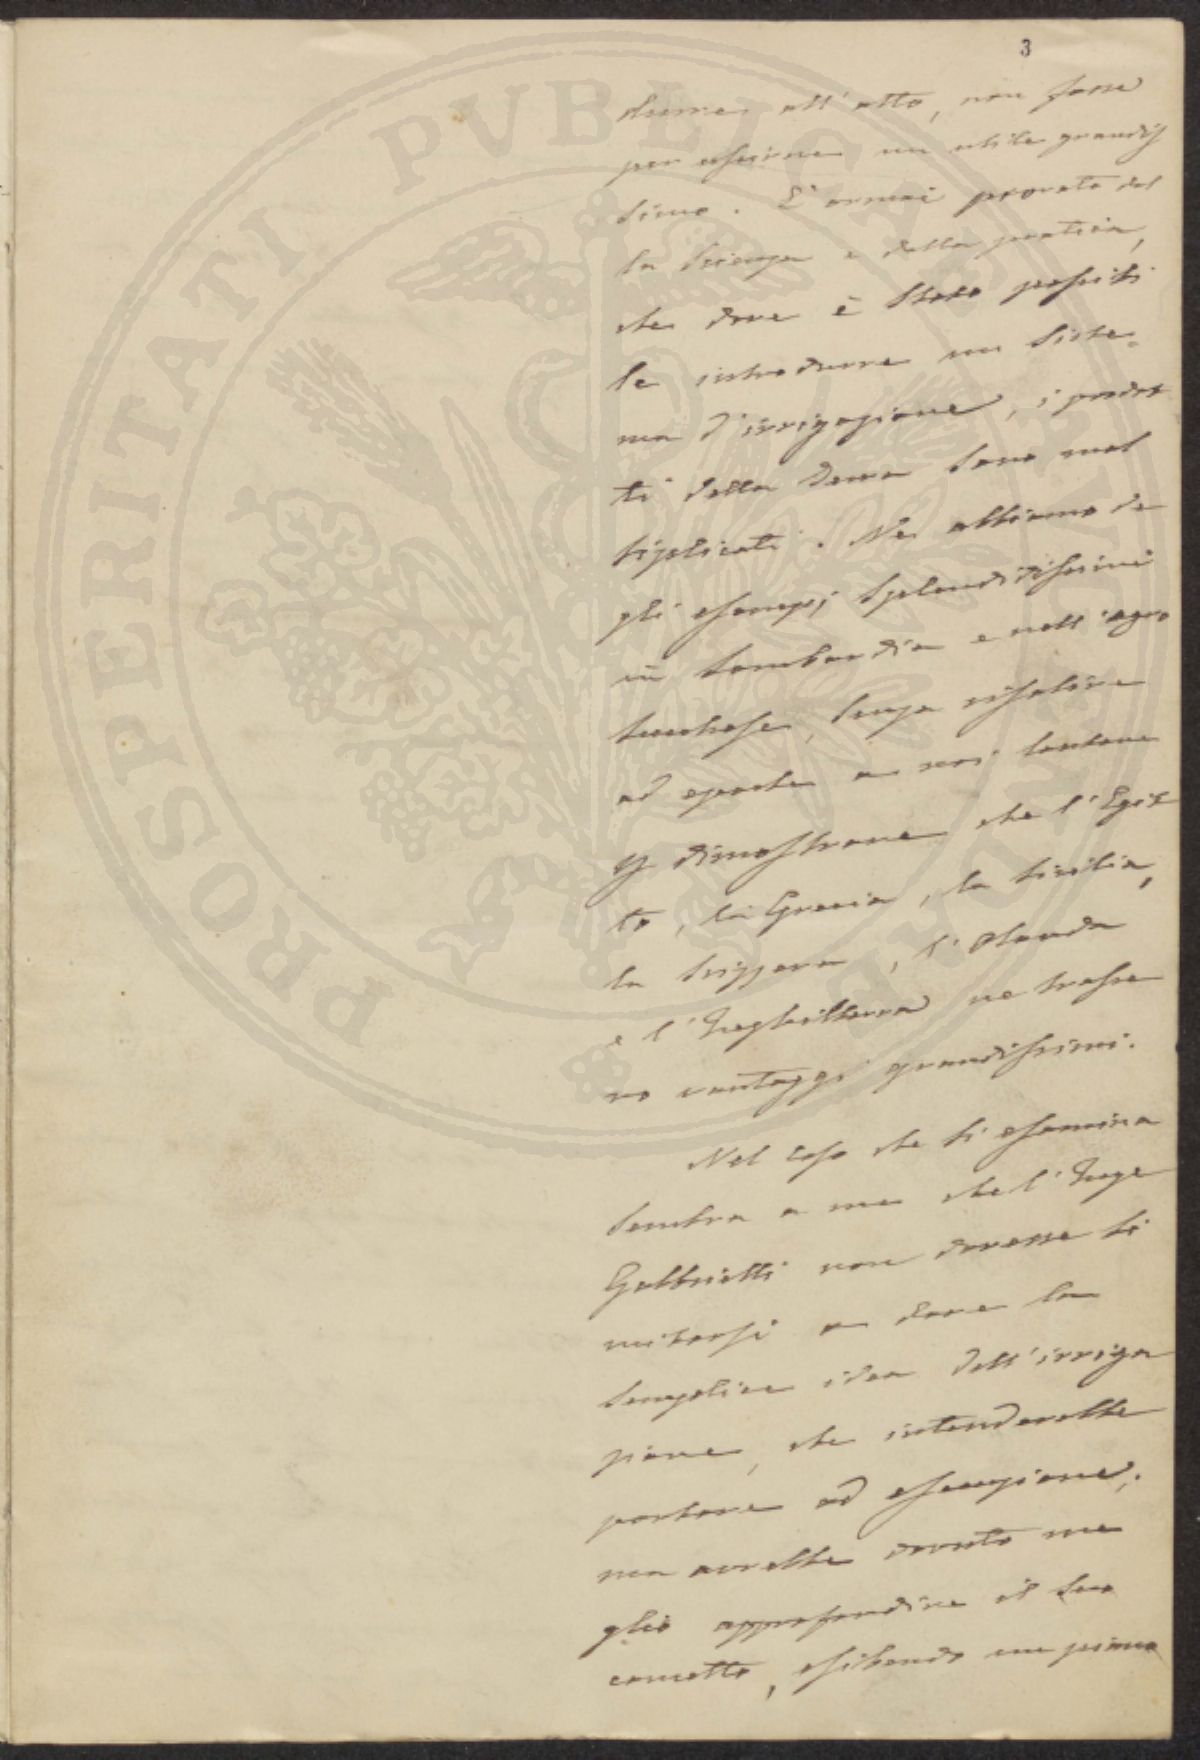 3
durre all'atto, non fosse
per essere un utile grandis
simo. È ormai provato dal
la Scienza e dalla pratica,
che dove è stato possibi
le introdurre un siste=
ma d'irrigazione, i prodot
ti della terra sono mol
tiplicati. Ne abbiamo de
gli esempj splendidissimi
in Lombardia e nell'agro
lucchese, senza risalire
ad epoche a noi lontane
dimostrare che l'Egit
to, la Grecia, la Sicilia,
la Svizzera, l'Olanda
e l'Inghilterra ne trasse
ro vantaggi grandissimi.
Nel caso che si esamina
sembra a me che l'Inge
Gabbrielli non dovesse li
mitarsi a dare la
semplice idea dell'irriga
zione, che intenderebbe
portare ad esecuzione;
ma avrebbe dovuto me
glio approfondire il suo
concetto, esibendo un primo
PROSPERITATI PVBLICAE